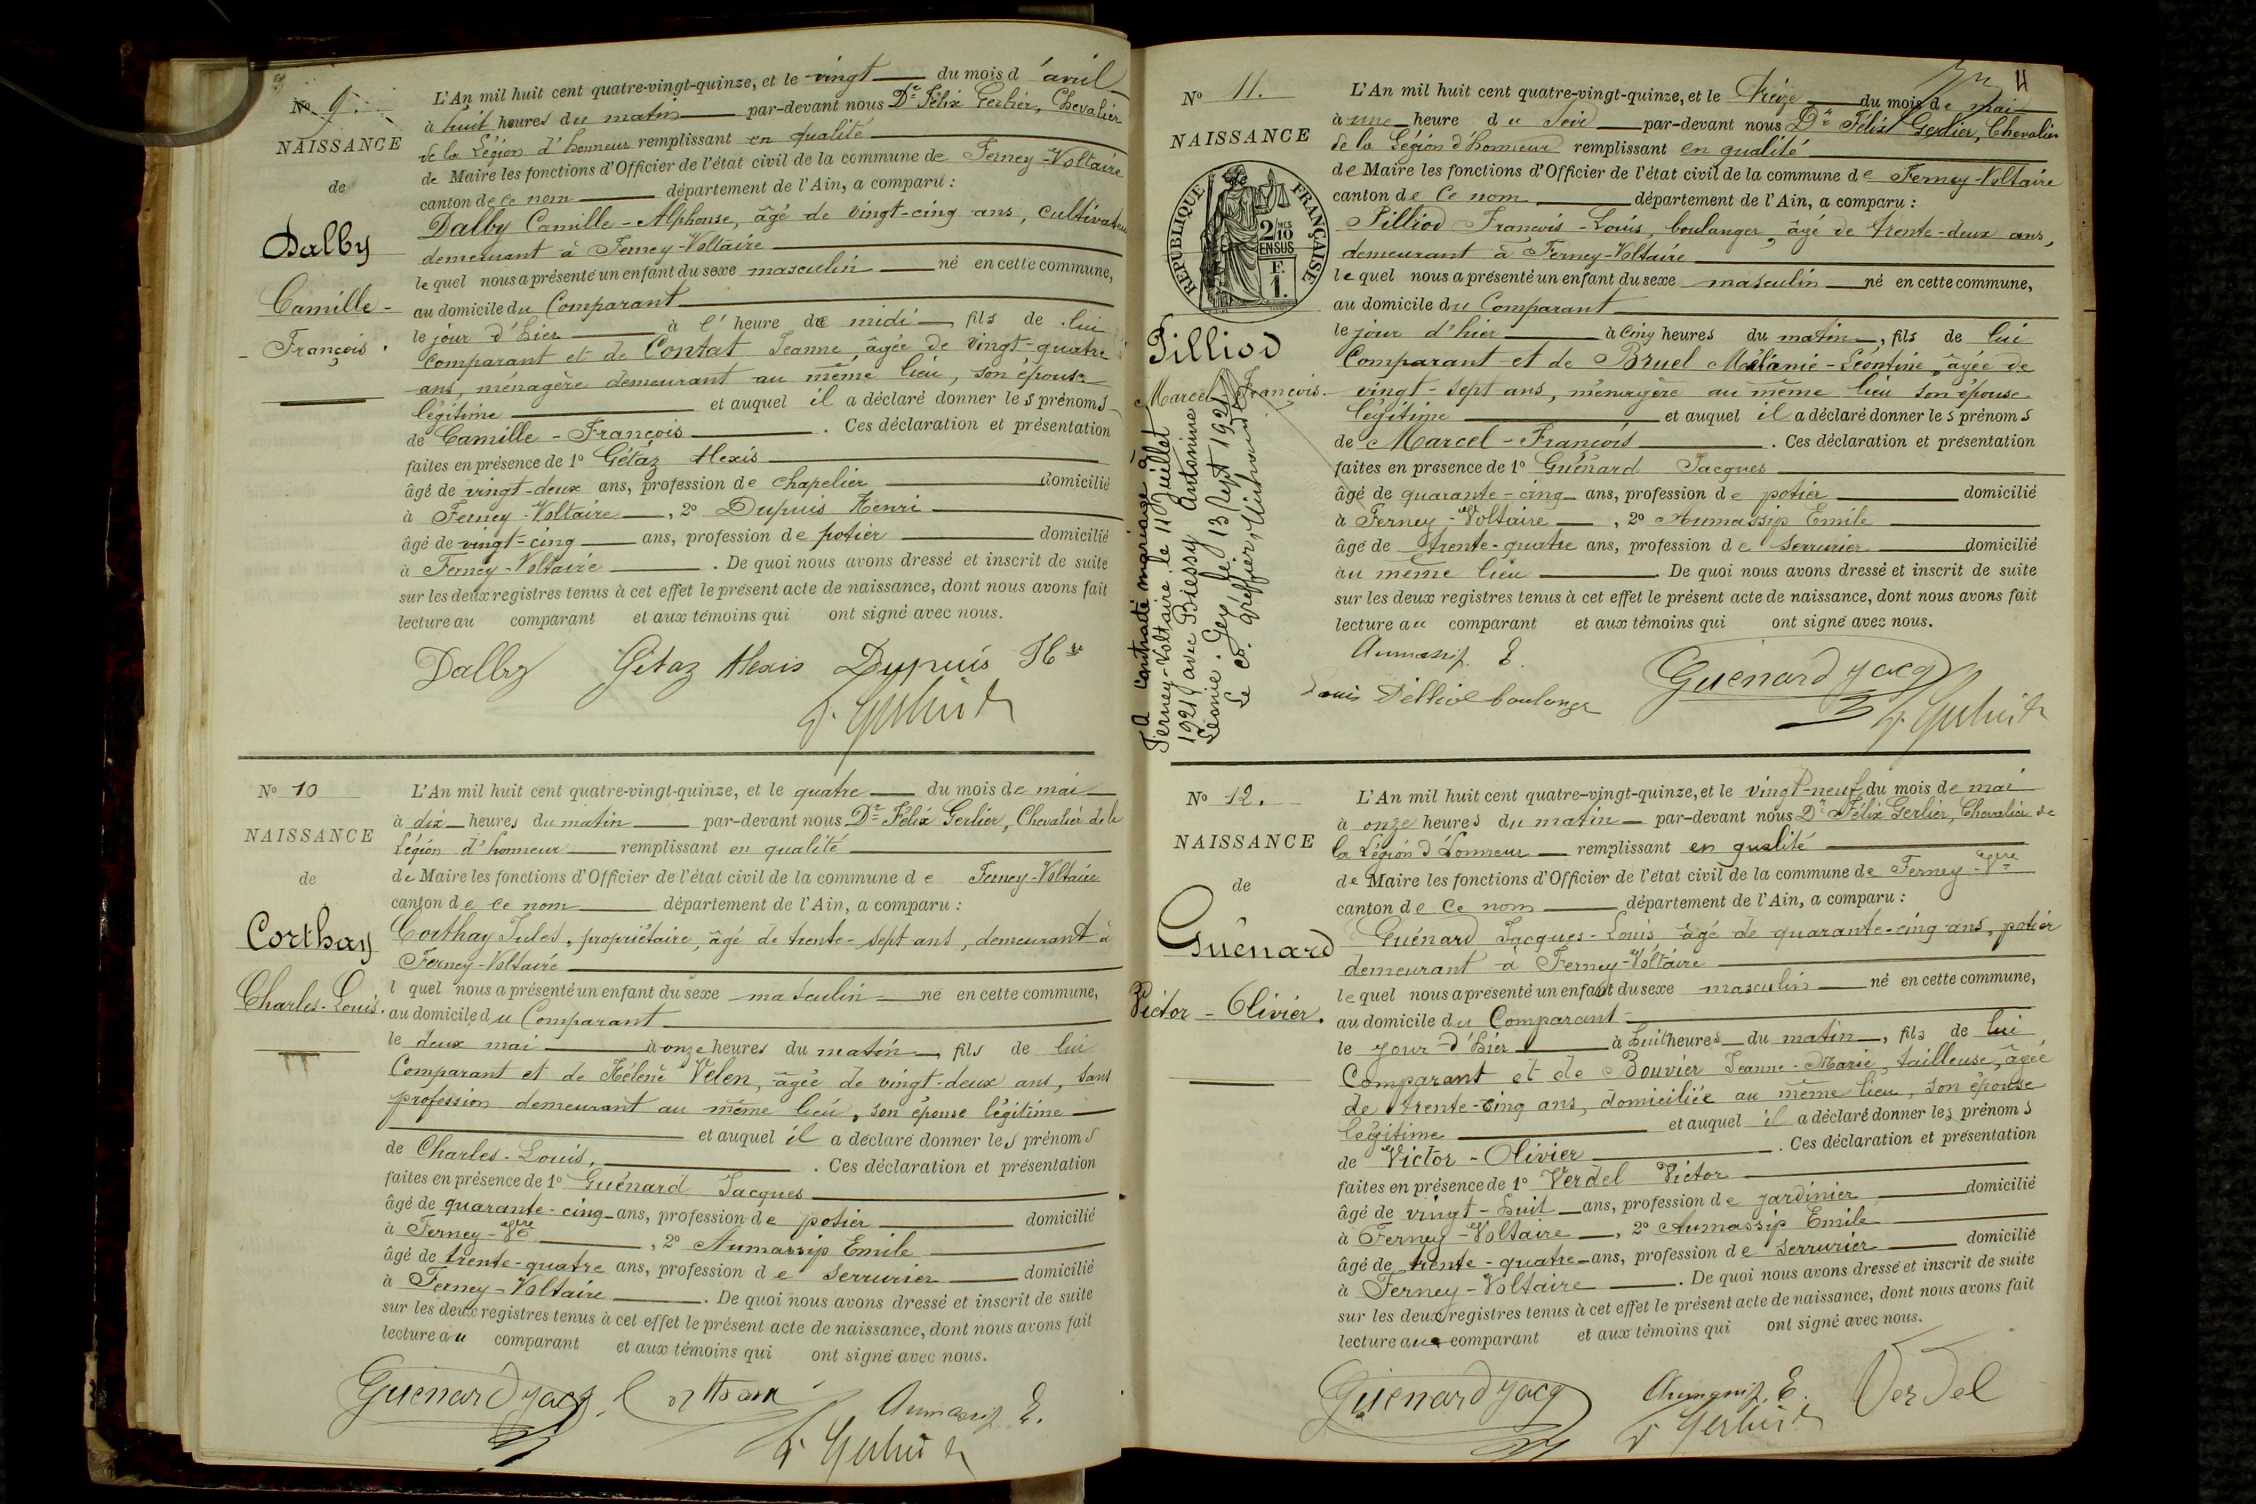 No 9.
NAISSANCE
de
Dalby
Camille -
- François.
L'An mil huit cent quatre-vingt-quinze, et le vingt du mois d'avril
à huit heures du matin par-devant nous Dr Félix Gerlier, Chevalier
de la Légion d'honneur remplissant en qualité
de Maire les fonctions d'Officier de l'état civil de la commune de Ferney-Voltaire
canton de ce nom département de l'Ain, a comparu :
Dalby Camille-Alphonse, âgé de vingt-cinq ans, cultivateur
demeurant à Ferney-Voltaire
lequel nous a présenté un enfant du sexe masculin né en cette commune,
au domicile du Comparant
le jour d'hier à l'heure de midi, fils de lui
Comparant et de Contat Jeanne, âgée de vingt-quatre
ans, ménagère demeurant au même lieu, son épouse
légitime et auquel il a déclaré donner les prénoms
de Camille-François. Ces déclaration et présentation
faites en présence de 1o Gétaz Alexis
âgé de vingt-deux ans, profession de chapelier domicilié
à Ferney-Voltaire, 2o Dupuis Henri
âgé de vingt-cinq ans, profession de potier domicilié
à Ferney-Voltaire. De quoi nous avons dressé et inscrit de suite
sur les deux registres tenus à cet effet le présent acte de naissance, dont nous avons fait
lecture au comparant et aux témoins qui ont signé avec nous.
Dalby Gétaz Alexis Dupuis Hri
No 10
NAISSANCE
de
Corthay
Charles-Louis.
L'An mil huit cent quatre-vingt-quinze, et le quatre du mois de mai
à dix heures du matin par-devant nous Dr Félix Gerlier, Chevalier de la
Légion d'honneur remplissant en qualité
de Maire les fonctions d'Officier de l'état civil de la commune de Ferney-Voltaire
canton de ce nom département de l'Ain, a comparu :
Corthay Jules, propriétaire, âgé de trente-sept ans, demeurant à
Ferney-Voltaire
l quel nous a présenté un enfant du sexe masculin né en cette commune,
au domicile du Comparant
le deux mai à onze heures du matin, fils de lui
Comparant et de Hélène Velen, âgée de vingt-deux ans, sans
profession demeurant au même lieu, son épouse légitime
et auquel il a déclaré donner les prénoms
de Charles-Louis. Ces déclaration et présentation
faites en présence de 1o Guénard Jacques
âgé de quarante-cinq ans, profession de potier domicilié
à Ferney-Vre, 2o Aumassip Emile
âgé de trente-quatre ans, profession de serrurier domicilié
à Ferney-Voltaire. De quoi nous avons dressé et inscrit de suite
sur les deux registres tenus à cet effet le présent acte de naissance, dont nous avons fait
lecture au comparant et aux témoins qui ont signé avec nous.
Guenard Jacq Aumassip E.
4
No 11.
NAISSANCE
RÉPUBLIQUE FRANÇAISE
2/10 MES
EN SUS
F.
1.
Pilliod
Marcel François.
A contracté mariage à
Ferney-Voltaire le 11 Juillet
1921 avec Biessy Antonine
Léonie. Gex le 13 Sept 1921
Le Cs. Greffier
L'An mil huit cent quatre-vingt-quinze, et le treize du mois de mai
à une heure du soir par-devant nous Dr Félix Gerlier, Chevalier
de la Légion d'honneur remplissant en qualité
de Maire les fonctions d'Officier de l'état civil de la commune de Ferney-Voltaire
canton de ce nom département de l'Ain, a comparu :
Pilliod François-Louis, boulanger, âgé de trente-deux ans,
demeurant à Ferney-Voltaire
lequel nous a présenté un enfant du sexe masculin né en cette commune,
au domicile du Comparant
le jour d'hier à cinq heures du matin, fils de lui
Comparant et de Bruel Mélanie-Léontine, âgée de
vingt-sept ans, ménagère au même lieu son épouse
légitime et auquel il a déclaré donner les prénoms
de Marcel-François. Ces déclaration et présentation
faites en présence de 1o Guénard Jacques
âgé de quarante-cinq ans, profession de potier domicilié
à Ferney-Voltaire, 2o Aumassip Emile
âgé de trente-quatre ans, profession de serrurier domicilié
au même lieu. De quoi nous avons dressé et inscrit de suite
sur les deux registres tenus à cet effet le présent acte de naissance, dont nous avons fait
lecture au comparant et aux témoins qui ont signé avec nous.
Aumassip. E.
Louis Pilliod boulanger Guenard Jacq
No 12.
NAISSANCE
de
Guénard
Victor-Olivier.
L'An mil huit cent quatre-vingt-quinze, et le vingt-neuf du mois de mai
à onze heures du matin par-devant nous Dr Félix Gerlier, Chevalier de
la Légion d'honneur remplissant en qualité
de Maire les fonctions d'Officier de l'état civil de la commune de Ferney-Vre
canton de ce nom département de l'Ain, a comparu :
Guénard Jacques-Louis âgé de quarante-cinq ans, potier
demeurant à Ferney-Voltaire
lequel nous a présenté un enfant du sexe masculin né en cette commune,
au domicile du Comparant
le jour d'hier à huit heures du matin, fils de lui
Comparant et de Bouvier Jeanne-Marie, tailleuse, âgée
de trente-cinq ans, domiciliée au même lieu, son épouse
légitime et auquel il a déclaré donner les prénoms
de Victor-Olivier. Ces déclaration et présentation
faites en présence de 1o Verdel Victor
âgé de vingt-huit ans, profession de jardinier domicilié
à Ferney-Voltaire, 2o Aumassip Emile
âgé de trente-quatre ans, profession de serrurier domicilié
à Ferney-Voltaire. De quoi nous avons dressé et inscrit de suite
sur les deux registres tenus à cet effet le présent acte de naissance, dont nous avons fait
lecture au comparant et aux témoins qui ont signé avec nous.
Guenard Jacq Aumassip. E. Verdel